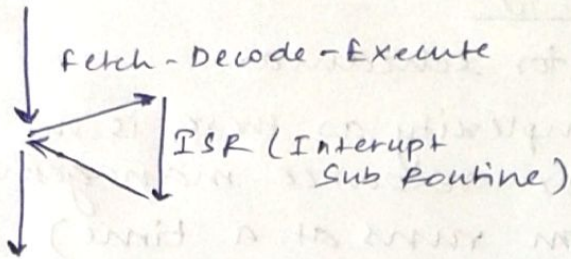 Fetch-Decode-Execute
ISR (Interupt
Sub Routine)